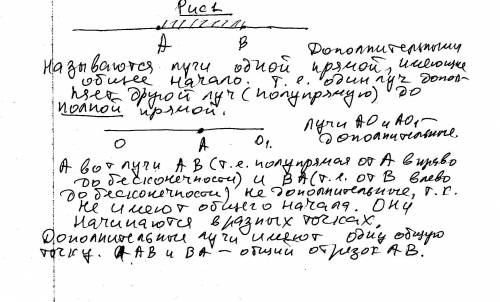 Рис 1
А В
Дополнительными
называются лучи одной прямой, имеющие
общее начало. т.е. один луч допол-
няет другой луч (полупрямую) до
полной прямой.
О А О₁
Лучи АО и АО₁ -
дополнительные.
А вот лучи АВ (т.е. полупрямая от А вправо
до бесконечности) и ВА (т.е. от В влево
до бесконечности) не дополнительные, т.к.
не имеют общего начала. Они
начинаются в разных точках.
Дополнительные лучи имеют одну общую
точку. А АВ и ВА – общий отрезок АВ.